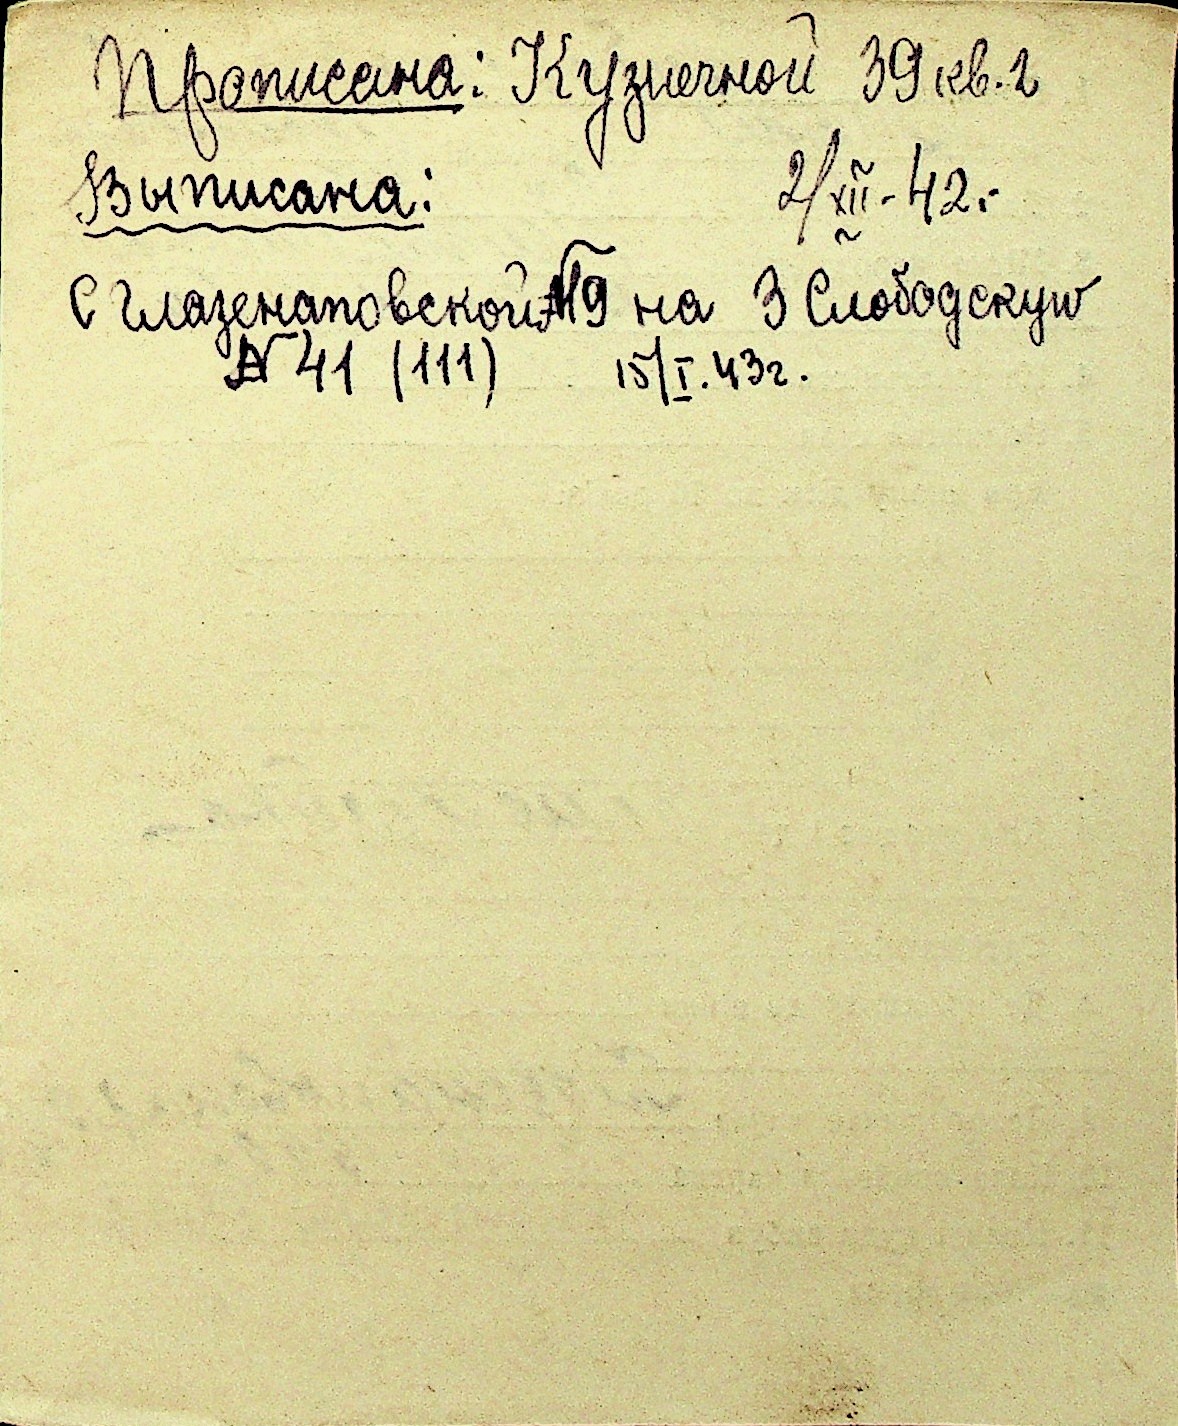 Прописана: Кузнечной 39 кв. 2
Выписана: 2/XII - 42.-
С Глазенаповской №19 на 3 Слободскую
№ 41 (111) 15/I. 43г.